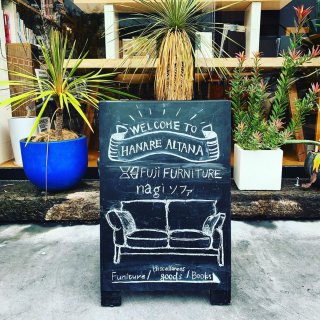 WELCOME TO
HANARE ALTANA
FUJI FURNITURE
nagi ソファ
Funiture / Miscellaneous goods / Books